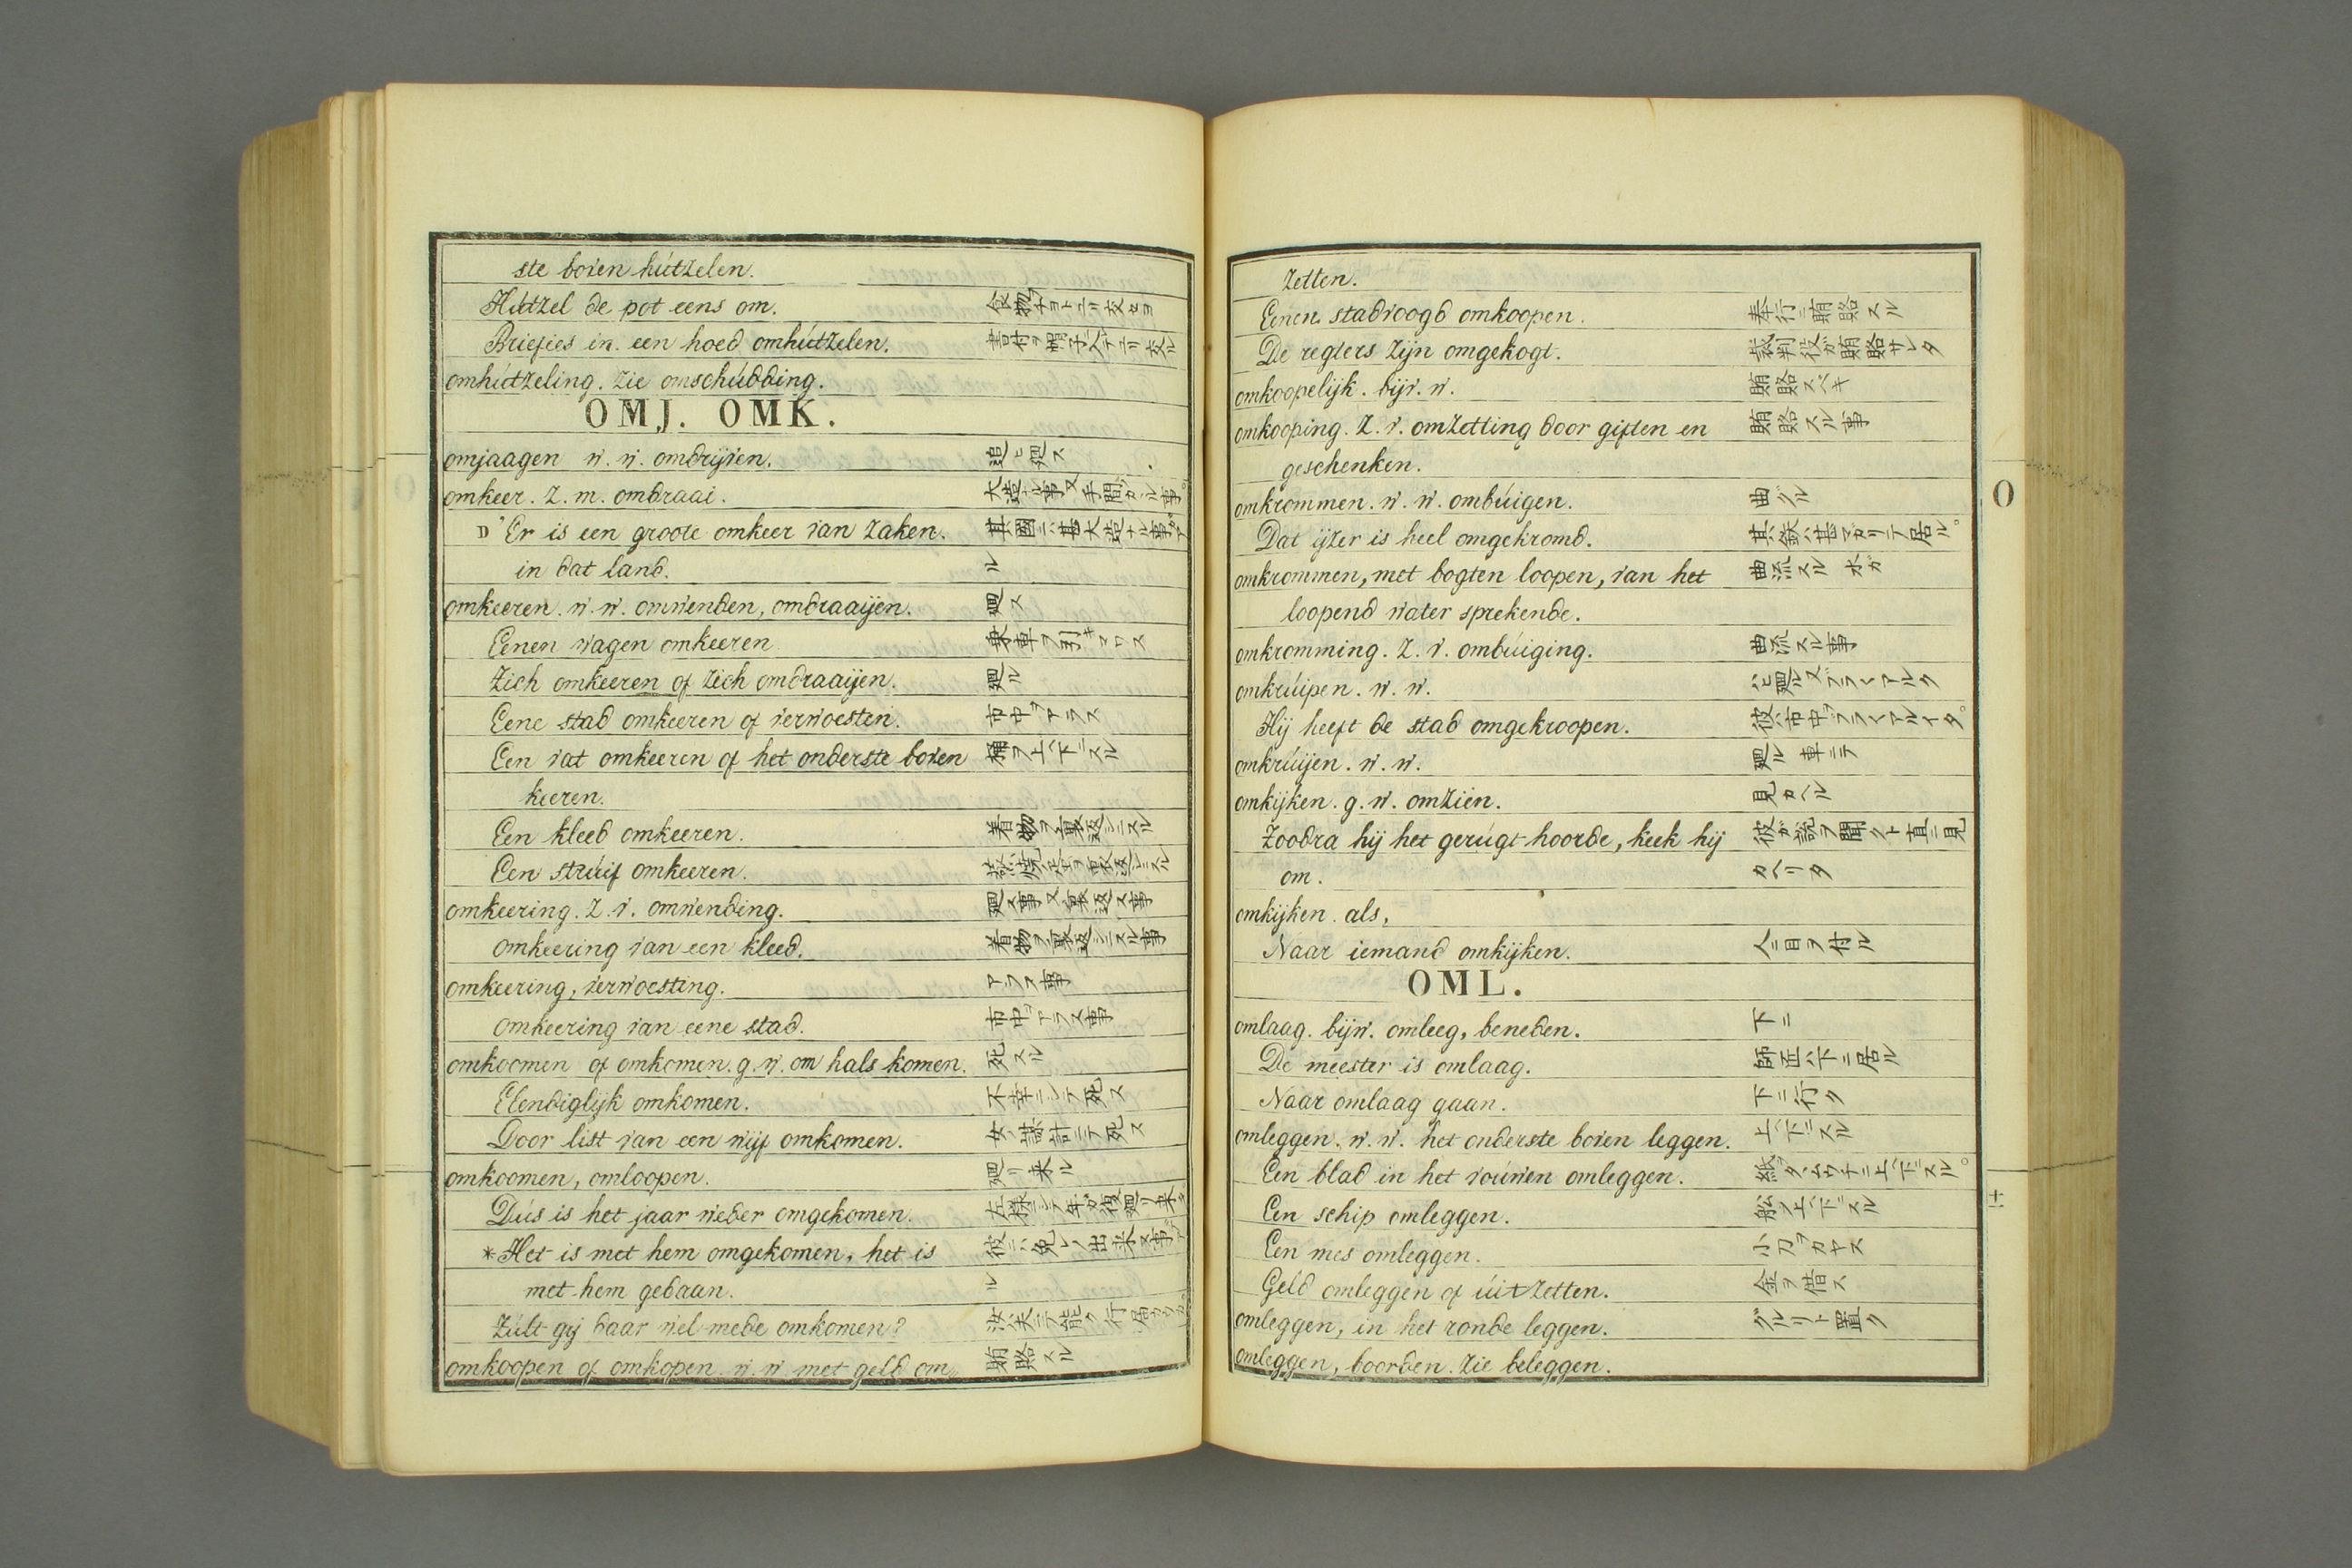 ste boven hútzelen.
Hútzel de pot eens om.
Briefies in een hoed omhútzelen.
omhútzeling. Zie omschúdding.
OMJ. OMK.
omjaagen w. w. omdrijven. 追ヒ廻ス
omkeer. Z. m. omdraai.
D' Er is een groote omkeer van zaken.
in dat land. ル
omkeeren. w. w. omwenden, omdraaijen. 廻ス
Eenen wagen omkeeren
Zich omkeeren of zich omdraaijen. 廻ル
Eene stad omkeeren of verwoesten. 市中ヲアラス
Een vat omkeeren of het onderste boven 桶ヲ上ヘ下ニスル
keeren.
Een kleed omkeeren. 着物ヲ裏返シニスル
Een strúif omkeeren.
omkeering. Z. v. omwending. 廻ス事又裏返ス事
omkeering van een kleed. 着物ヲ裏返シニスル事
omkeering, verwoesting. アラス事
omkeering van eene stad. 市中ヲアラス事
omkoomen of omkomen. g. w. om hals komen. 死スル
Elendiglijk omkomen. 不幸ニシテ死ス
Door list van een wijf omkomen. 女ノ謀計ニテ死ス
omkoomen, omloopen. 廻リ来ル
Dús is het jaar weder omgekomen.
*Het is met hem omgekomen, het is
met hem gedaan. ル
Zúlt gij daar wel mede omkomen?
omkoopen of omkopen w. w. met geld om 賄賂スル
zetten.
Eenen stadvoogd omkoopen. 奉行ニ賄賂スル
De regters zijn omgekogt. 裁判役ガ賄賂サレタ
omkoopelijk. bijv. w. 賄賂スベキ
omkooping. Z. v. omzetting door giften en 賄賂スル事
geschenken.
omkrommen. w. w. ombúigen. 曲ゲル
Dat ijzer is heel omgekromd. 其鉄ハ甚マガリテ居ル。
omkrommen, met bogten loopen, van het 曲流スル 水ガ
loopend water sprekende.
omkromming. Z. v. ombúiging. 曲流スル事
omkrúipen. w. w.
Hij heeft de stad omgekroopen. 彼ハ市中ヲブラ〱アルイタ。
omkrúijen. w. w. 廻ル 車ニテ
omkijken. g. w. omzien. 見カヘル
Zoodra hij het gerúgt hoorde, keek hij 彼ガ説ヲ聞クト直ニ見
om. カヘリタ
omkijken als,
Naar iemand omkijken. 人ニ目ヲ付ル
OML.
omlaag. bijw. omleeg, beneden. 下ニ
De meester is omlaag. 師匠ハ下ニ居ル
Naar omlaag gaan. 下ニ行ク
omleggen. w. w. het onderste boven leggen. 上ヘ下ニスル
Een blad in het voúwen omleggen.
Een schip omleggen. 船ヲ上ヘ下ニスル
Een mes omleggen. 小刀ヲカヤス
Geld omleggen of úitzetten. 金ヲ借ス
omleggen, in het ronde leggen. グルリト置ク
omleggen, boorden. Zie beleggen.
O